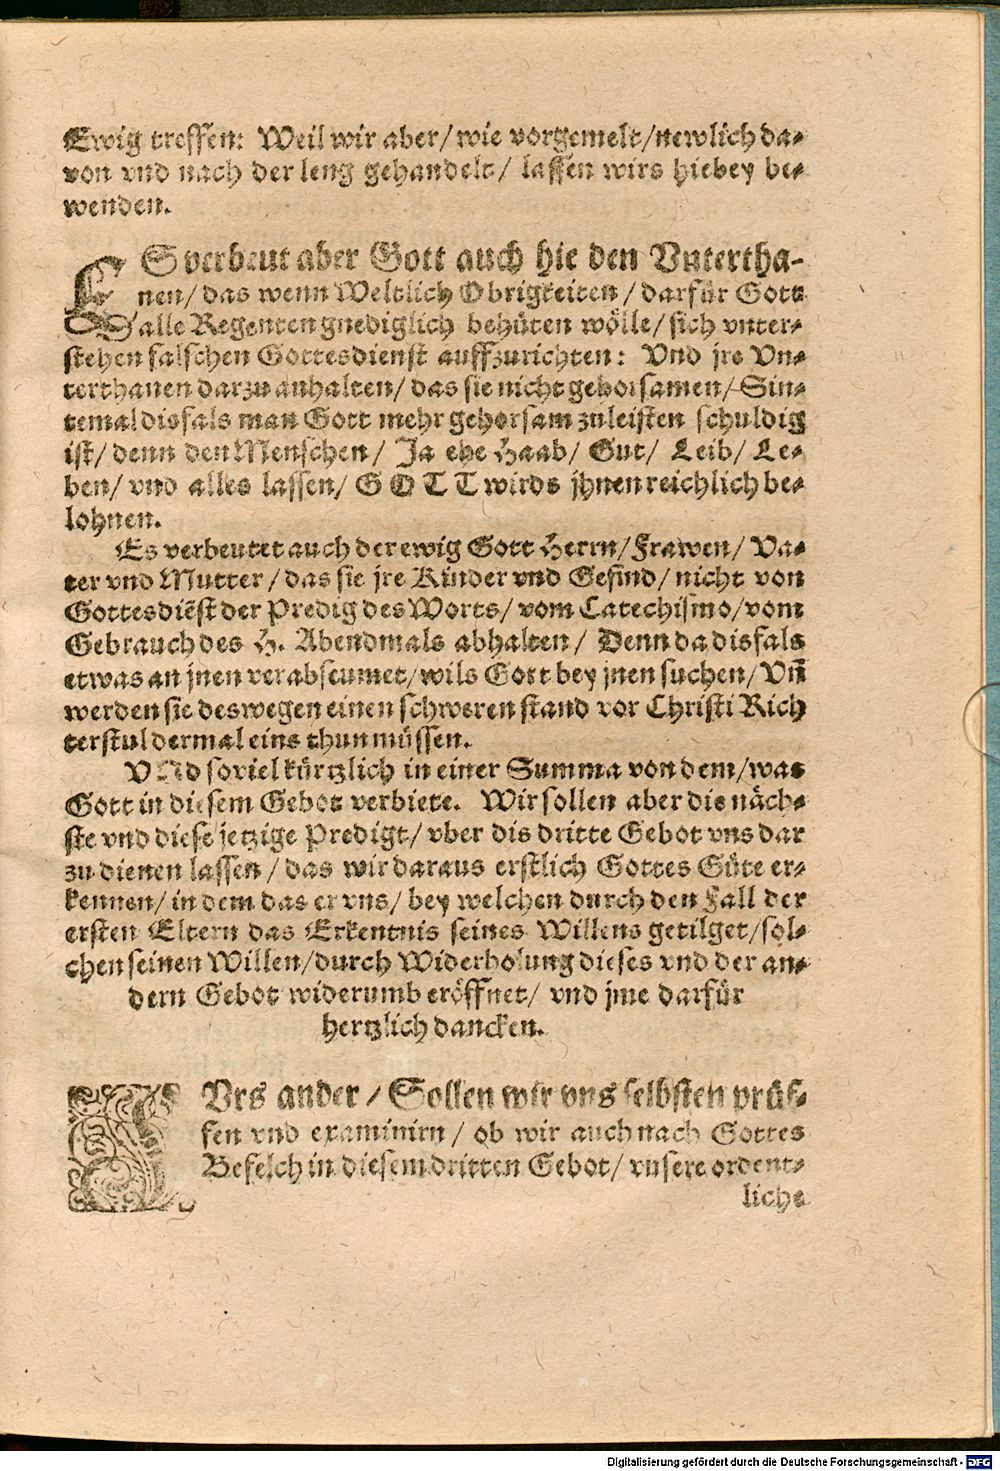 Ewig treffen: Weil wir aber/ wie vorgemelt/ newlich da-
von vnd nach der leng gehandelt/ lassen wirs hiebey be-
wenden.
ES verbeut aber Gott auch hie den Vntertha-
nen/ das wenn Weltlich Obrigkeiten/ darfür Gott
alle Regenten gnediglich behüten wölle/ sich vnter-
stehen falschen Gottesdienst auffzurichten: Vnd jre Vn-
terthanen darzu anhalten/ das sie nicht gehorsamen/ Sin-
temal disfals man Gott mehr gehorsam zuleisten schuldig
ist/ denn den Menschen/ Ja ehe Haab/ Gut/ Leib/ Le-
ben/ vnd alles lassen/ GOTT wirds jhnen reichlich be-
lohnen.
Es verbeutet auch der ewig Gott Herrn/ Frawen/ Va-
ter vnd Mutter/ das sie jre Kinder vnd Gesind/ nicht von
Gottesdiēst der Predig des Worts/ vom Catechismo/ vom
Gebrauch des H. Abendmals abhalten/ Denn da disfals
etwas an jnen verabseumet/ wils Gott bey jnen suchen/ Vñ
werden sie deswegen einen schweren stand vor Christi Rich
terstul dermal eins thun müssen.
VNd soviel kürtzlich in einer Summa von dem/ was
Gott in diesem Gebot verbiete. Wir sollen aber die näch-
ste vnd diese jetzige Predigt/ vber dis dritte Gebot vns dar
zu dienen lassen/ das wir daraus erstlich Gottes Güte er-
kennen/ in dem das er vns/ bey welchen durch den Fall der
ersten Eltern das Erkentnis seines Willens getilget/ sol-
chen seinen Willen/ durch Widerholung dieses vnd der an-
dern Gebot widerumb eröffnet/ vnd jme darfür
hertzlich dancken.
FVrs ander/ Sollen wir vns selbsten prüf-
fen vnd examinirn/ ob wir auch nach Gottes
Befelch in diesem dritten Gebot/ vnsere ordent-
liche
Digitalisierung gefördert durch die Deutsche Forschungsgemeinschaft - DFG